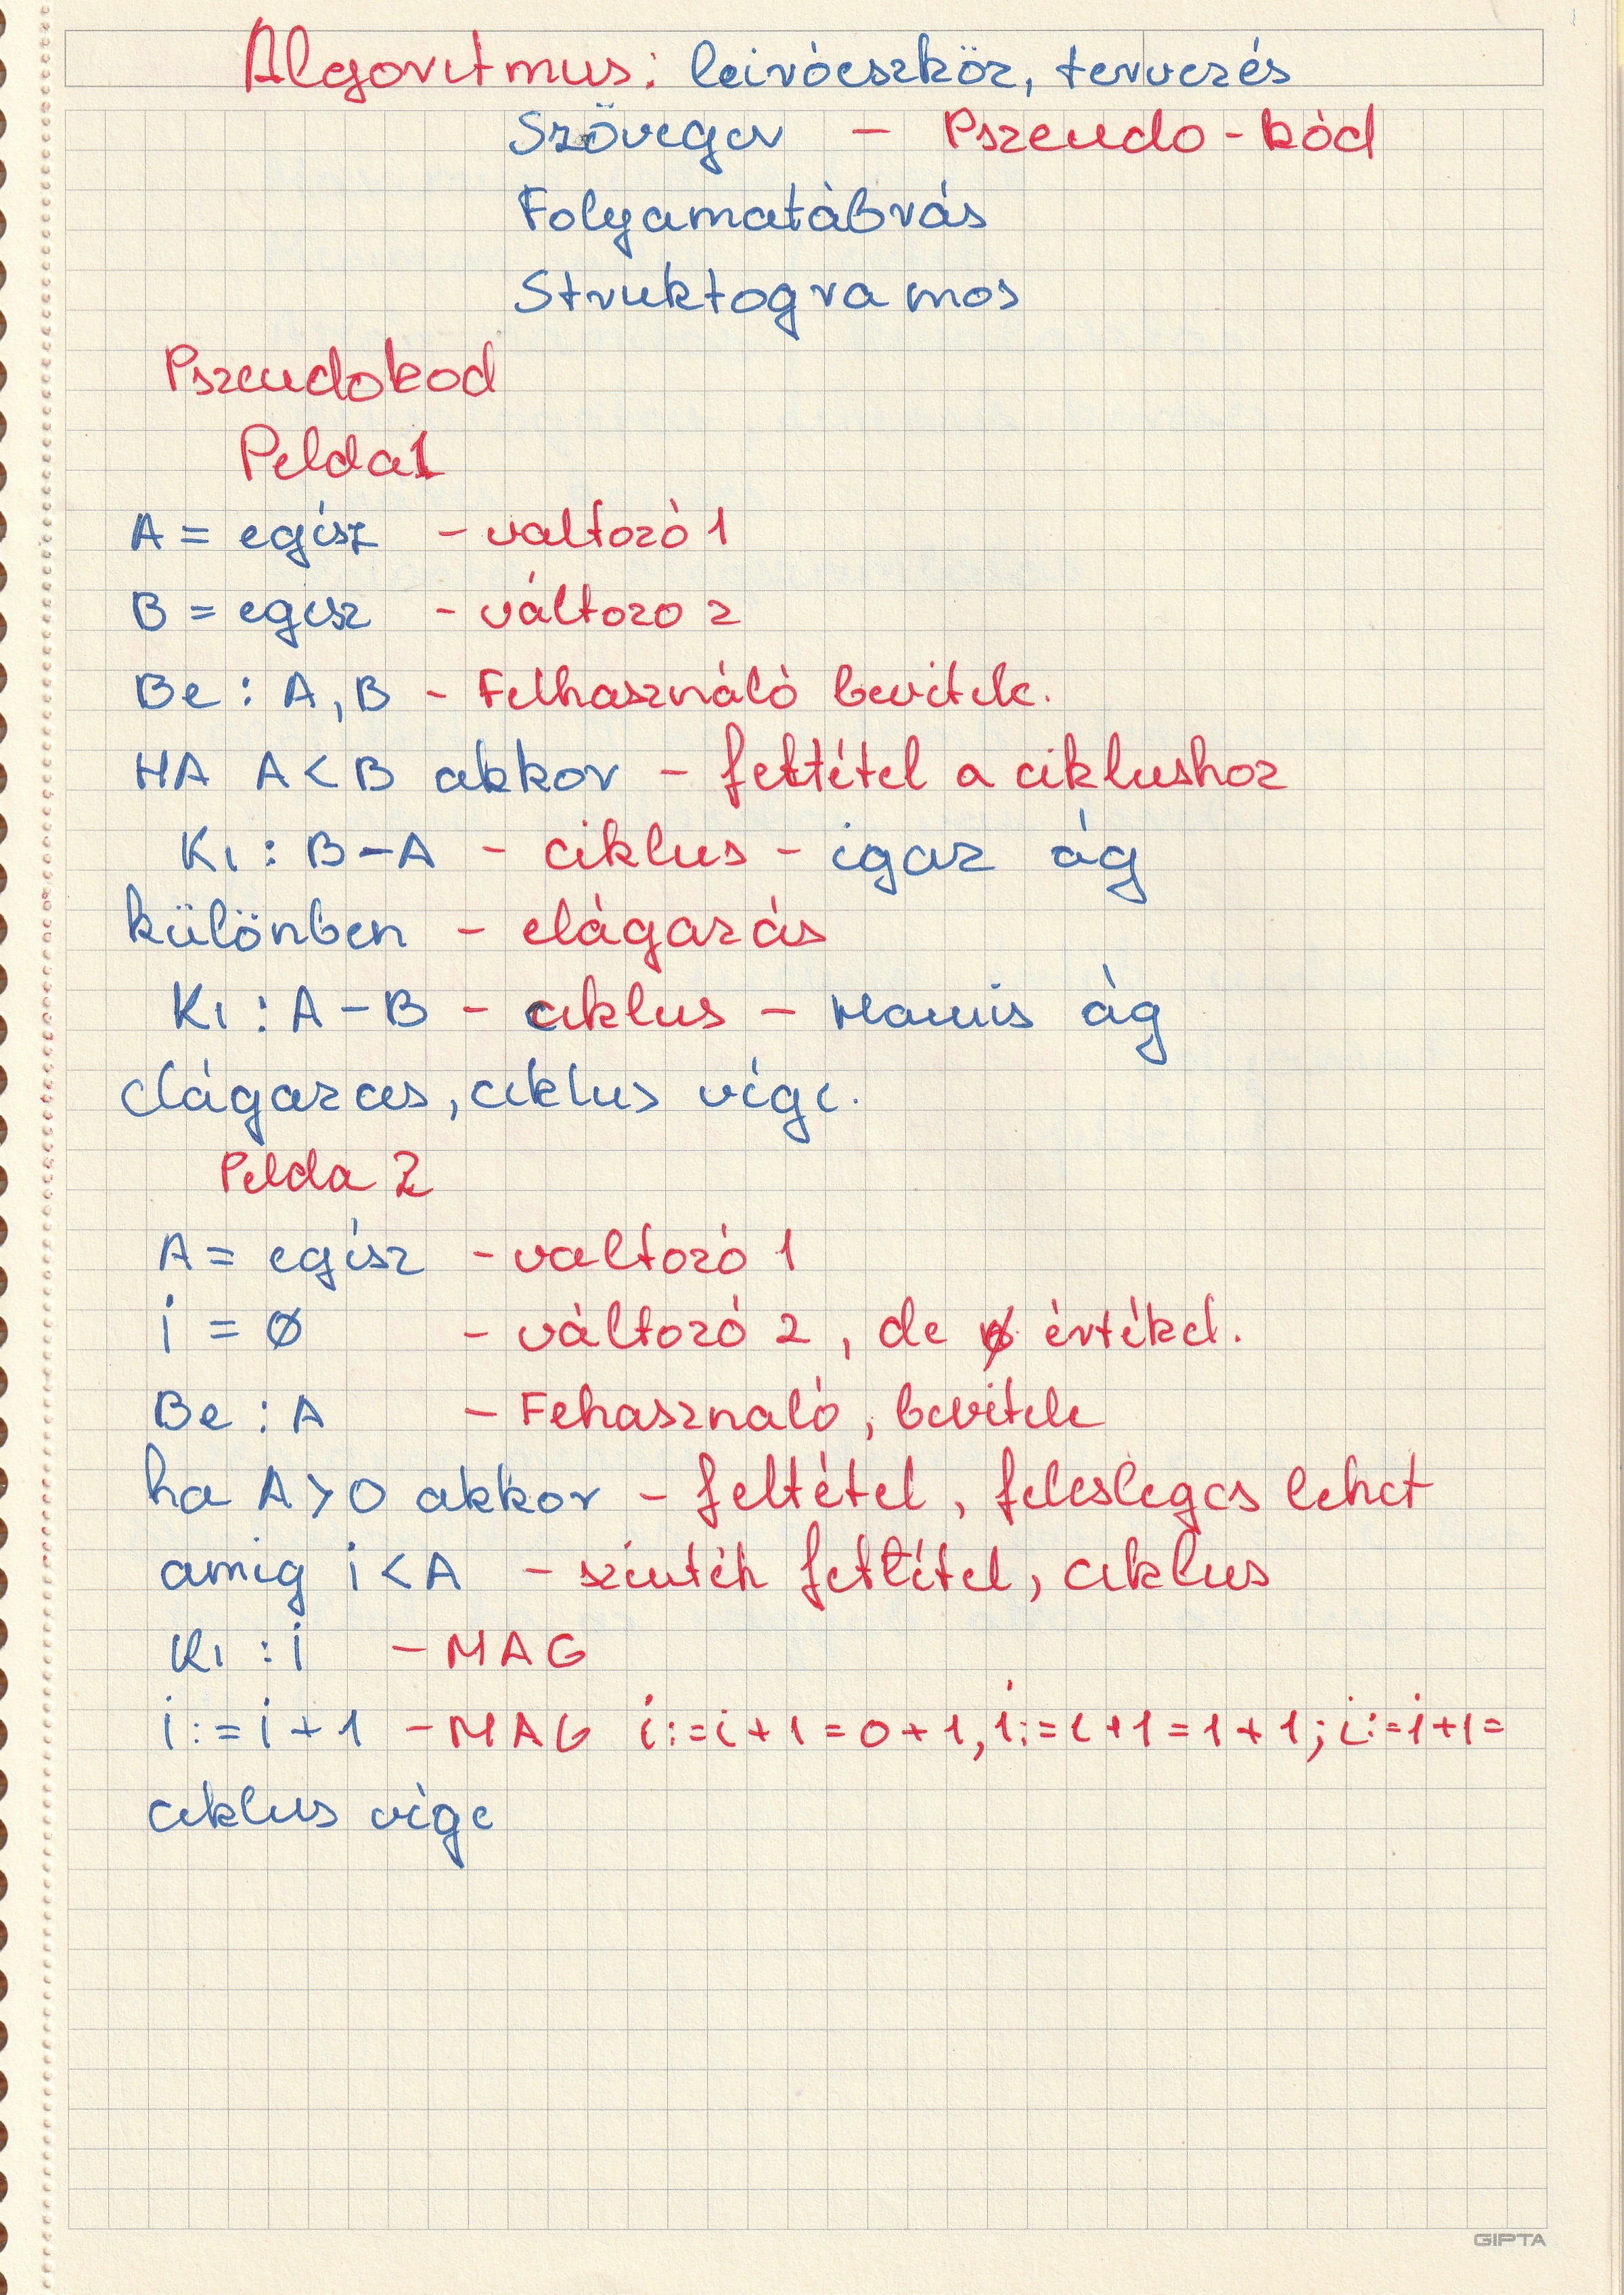 Algoritmus: leiróeszköz, tervezés
Szöveges – Pszeudo-kód
Folyamatábrás
Struktogramos
Pszeudokod
Pelda1
A = egész – valtozó 1
B = egész – változo 2
Be : A, B – Felhasználó bevitele.
HA A < B akkor – feltétel a ciklushoz
KI : B – A – ciklus – igaz ág
különben – elágazás
KI : A – B – ciklus – Hamis ág
elágazas, ciklus vége.
Pelda 2
A = egész – valtozó 1
i = 0 – változó 2, de 0 értékel.
Be : A – Fehasznaló, bevitele
ha A > 0 akkor – feltétel, felesleges lehet
amig i < A – szintén feltétel, ciklus
KI : i – MAG
i := i + 1 – MAG i := i + 1 = 0 + 1, i := i + 1 = 1 + 1; i := i + 1 =
ciklus vége
GIPTA